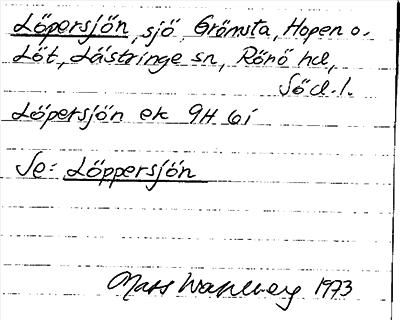 Löpersjön, sjö, Grämsta, Hopen o.
Löt, Lästringe sn, Rönö hd,
Söd.l.
Löpersjön ek 9H 6i
Se: Löppersjön
Mats Wahlberg 1973